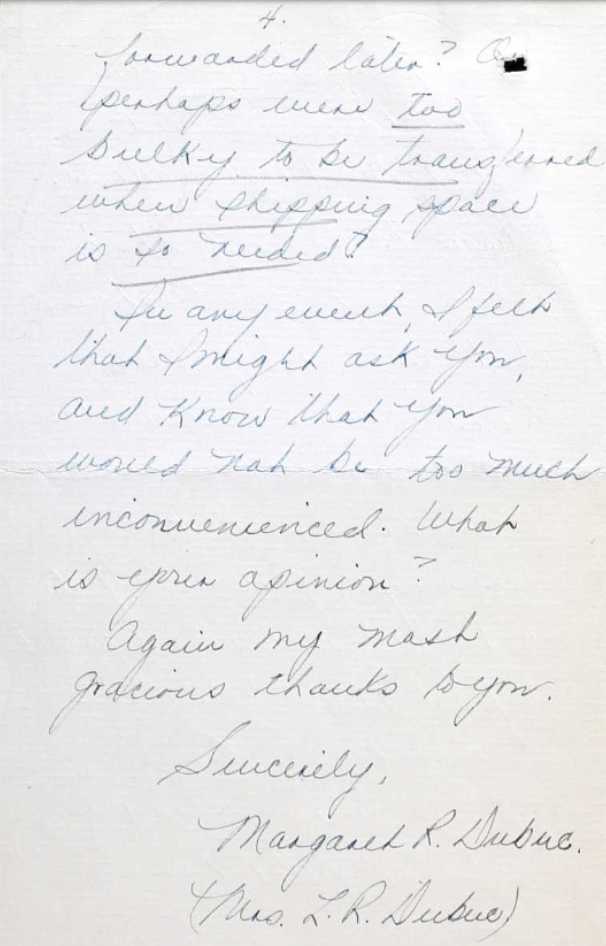 4.
forwarded later? Or
perhaps were too
bulky to be transferred
when shipping space
is so needed?
In any event, I felt
that I might ask you,
and know that you
would not be too much
inconvenienced. What
is your opinion?
Again my most
gracious thanks to you.
Sincerely,
Margaret R. Dubuc.
(Mrs. L. R. Dubuc)